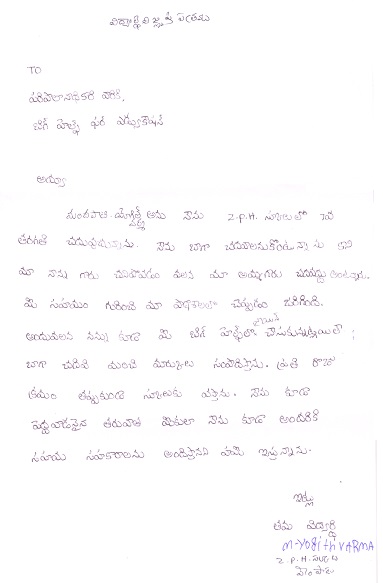 విద్యార్థి విజ్ఞప్తి పత్రము
TO
పరిపాలనాధికారి వారికి,
బిగ్ హెల్ప్ ఫర్ ఎడ్యుకేషన్
అయ్యా
నేను Z.P.H. స్కూలులో 7వ
తరగతి చదువుచున్నాను. నేను బాగా చదవాలనుకొంటున్నాను కాని
మా నాన్న గారు చనిపోవడం వలన మా అమ్మగారు అంటున్నారు.
మీ సహాయం గురించి మా పాఠశాలలో చెప్పడం జరిగింది.
అందువలన నన్ను కూడా మీ బిగ్ హెల్ప్‌లో జాయిన్ చేసుకున్నట్లయితే ;
బాగా చదివి మంచి మార్కులు సంపాదిస్తాను. ప్రతి రోజూ
క్రమం తప్పకుండా స్కూలుకు వస్తాను. నేను కూడా
పెద్దవాడినైన తరువాత మీలా నేను కూడా అందరికి
సహాయ సహకారాలను అందిస్తానని హామీ ఇస్తున్నాను.
ఇట్లు
తమ విద్యార్థి
M-YOGITH VARMA
Z.P.H.